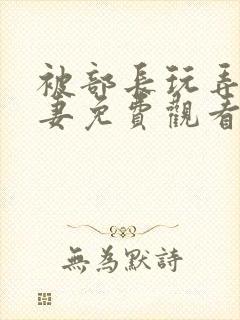 被部長玩弄
妻免費觀看
無為默詩